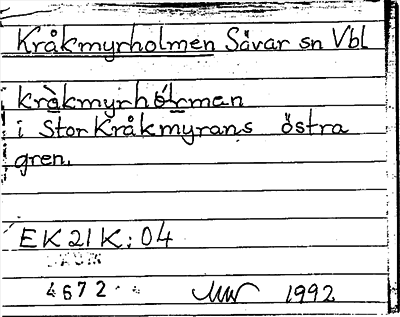 Kråkmyrholmen Sävar sn Vbl
kràkmyrhólman
i StorKråkmyrans östra
gren.
EK 21 K: 04
4672
1992